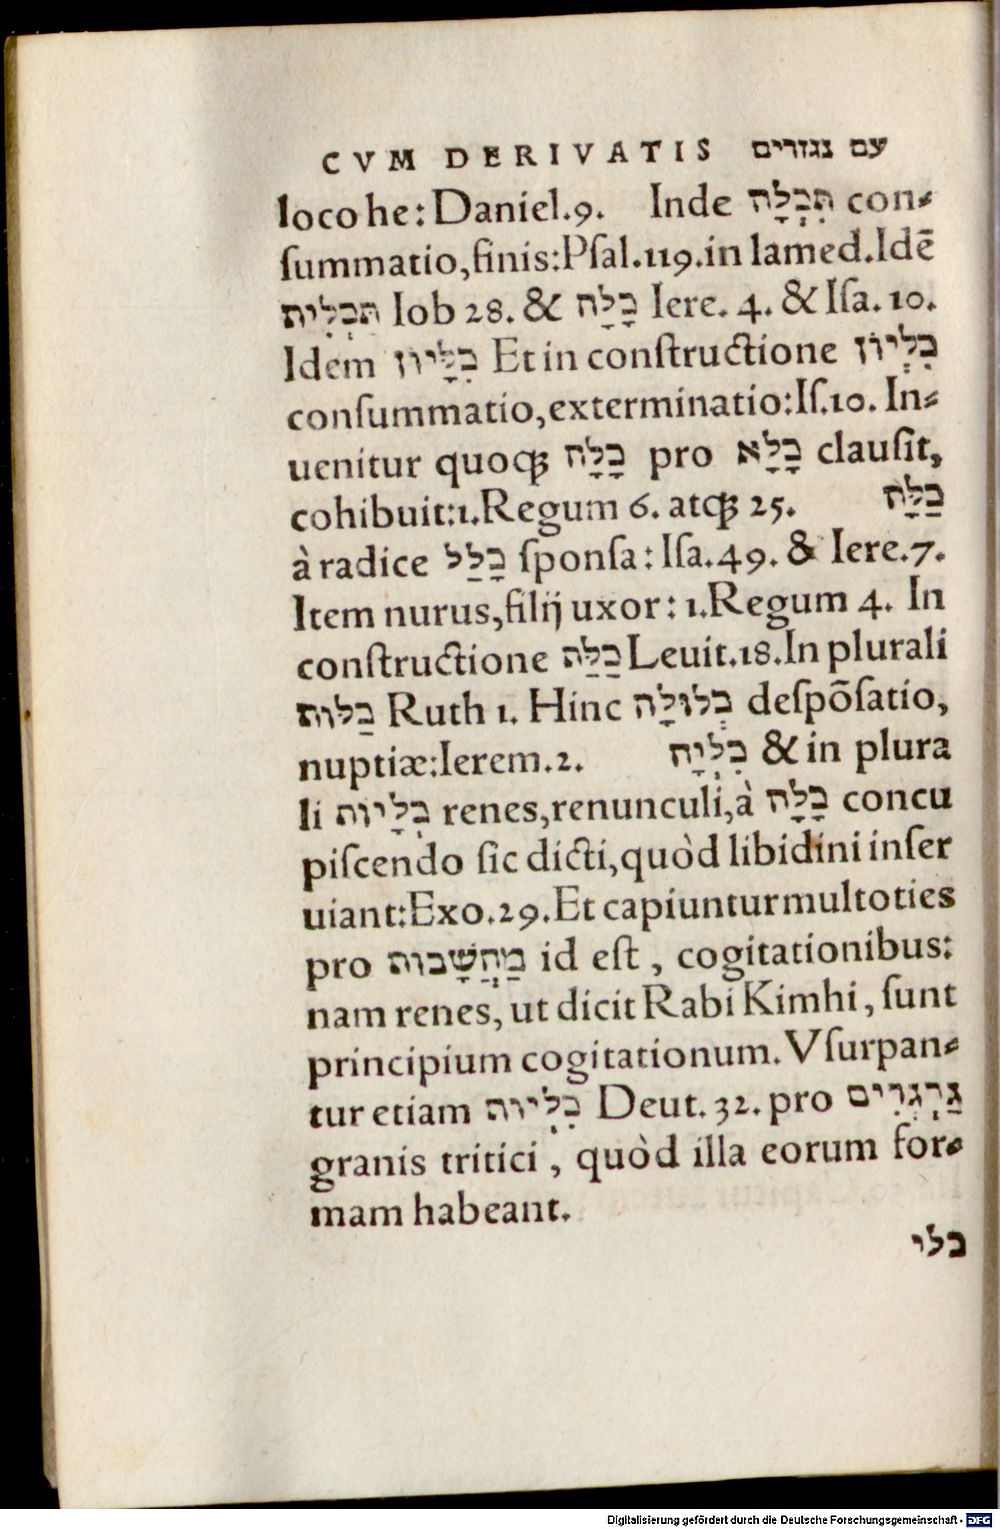 CVM DERIVATIS עם נגזרים
loco he: Daniel.9. Inde תִּכְלָה con⸗
ſummatio,finis:Pſal.119.in lamed.Idē
תַּכְלִית Iob 28. & כָּלָה Iere. 4. & Iſa. 10.
Idem כִּלָּיוֹן Et in conſtructione כִּלְיוֹן
conſummatio,exterminatio:Iſ.10. In⸗
uenitur quoqꝫ כָּלָה pro כָּלָא clauſit,
cohibuit:1.Regum 6. atqꝫ 25. כַּלָּה
à radice כָּלַל ſponſa: Iſa.49. & Iere.7.
Item nurus,filij uxor: 1.Regum 4. In
conſtructione כַּלַּה Leuit.18.In plurali
כַּלּוֹת Ruth 1. Hinc כְּלוּלָה deſpōſatio,
nuptiæ:Ierem.2. כִּלְיָה & in plura
li כְּלָיוֹת renes,renunculi,à כָּלָה concu
piſcendo ſic dicti,quòd libidini inſer
uiant:Exo.29.Et capiuntur multoties
pro מַחֲשָׁבוֹת id eſt, cogitationibus:
nam renes, ut dicit Rabi Kimhi, ſunt
principium cogitationum. Vſurpan⸗
tur etiam כִּלְיוֹת Deut. 32. pro גַּרְגְּרִים
granis tritici, quòd illa eorum for⸗
mam habeant.
כלי
Digitalisierung gefördert durch die Deutsche Forschungsgemeinschaft - DFG